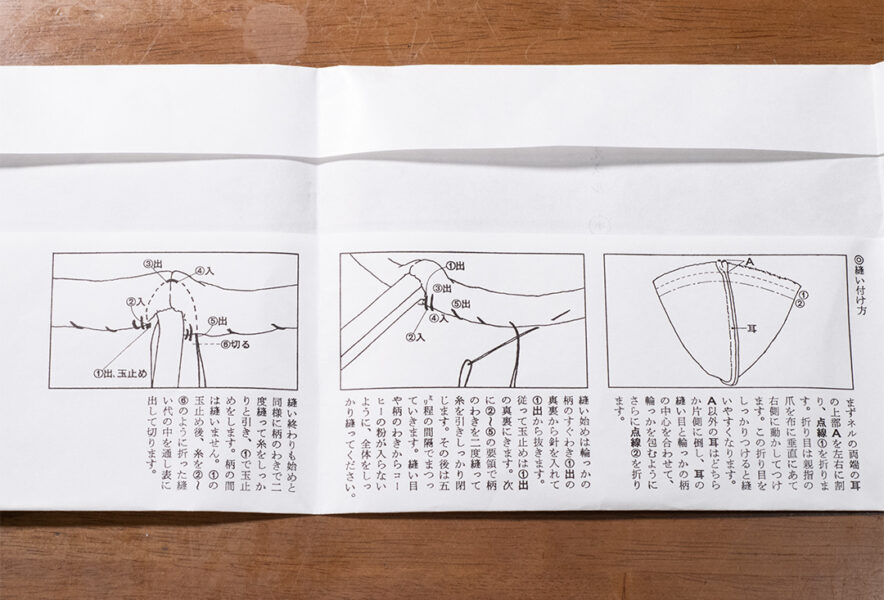 ◎縫い付け方
A
①
②
耳
まずネルの両端の耳
の上部Aを左右に割
り、点線①を折りま
す。折り目は親指の
爪を布に垂直にあて
右側に動かしてつけ
ます。この折り目を
しっかりつけると縫
いやすくなります。
A以外の耳はどちら
か片側に倒し、耳の
縫い目と輪っかの柄
の中心を合わせて、
輪っかを包むように
さらに点線②を折り
ます。
①出
③出
⑤出
④入
②入
縫い始めは輪っかの
柄のすぐわき①出の
真裏から針を入れて
①出から抜きます。
従って玉止めは①出
の真裏にきます。次
に②〜⑤の要領で柄
のわきを二度縫って
糸を引きしっかり閉
じます。その後は五
ミリ程の間隔でまつっ
ていきます。縫い目
や柄のわきからコー
ヒーの粉が入らない
ように、全体をしっ
かり縫ってください。
③出
④入
②入
⑤出
⑥切る
①出、玉止め
縫い終わりも始めと
同様に柄のわきで二
度縫って糸をしっか
りと引き、①で玉止
めをします。柄の間
は縫いません。①の
玉止め後、糸を②〜
⑥のように折った縫
い代の中を通し表に
出して切ります。